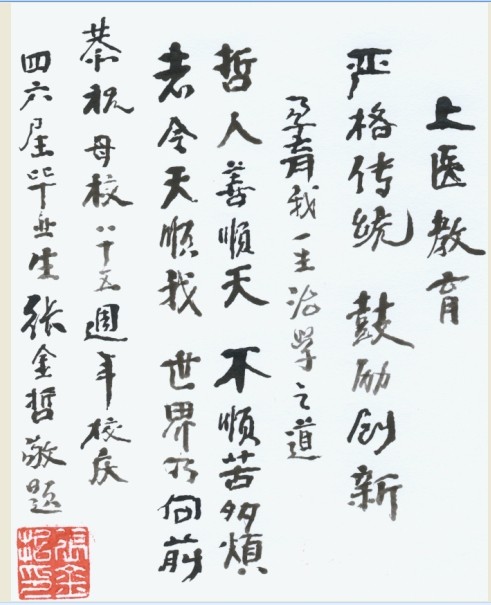 上医教育
严格传统 鼓励创新
孕育我一生治学之道
哲人善順天 不順苦多煩
若令天順我 世界乃向前
恭祝母校八十五週年校庆
四六届毕业生 張金哲敬题
張金哲印